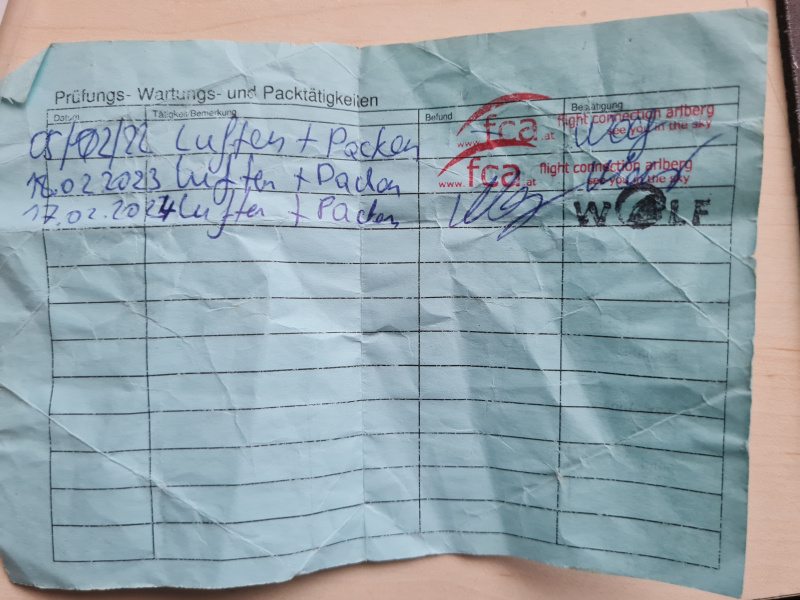 Prüfungs- Wartungs- und Packtätigkeiten
Datum Tätigkeit/Bemerkung Befund Bestätigung
05/02/22 Luften + Packen www.fca.at flight connection arlberg
see you in the sky
18.02.2023 Luften + Packen www.fca.at flight connection arlberg
see you in the sky
17.02.2024 Luften + Packen WOLF